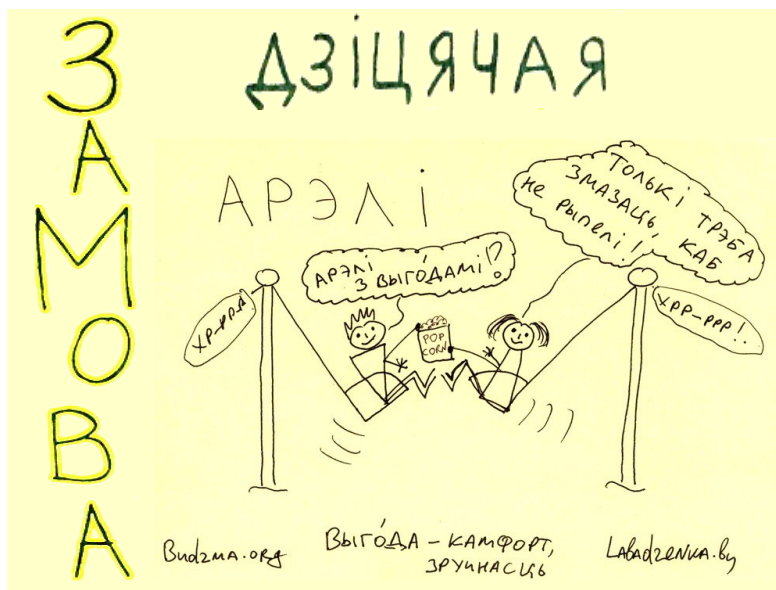 ЗАМОВА
ДЗІЦЯЧАЯ
АРЭЛІ
АРЭЛІ
З ВЫГО́ДАМІ!?
ТОЛЬКІ ТРЭБА
ЗМАЗАЦЬ, КАБ
НЕ РЫПЕЛІ!
ХР-РР-Р
POP
CORN
ХРР-РРР!
Budzma.org
ВЫГО́ДА – КАМФОРТ,
ЗРУЧНАСЦЬ
Labadzenka.by